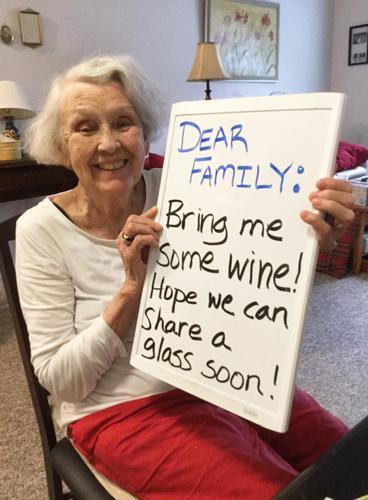 DEAR
FAMILY:
Bring me
some wine!
Hope we can
share a
glass soon!